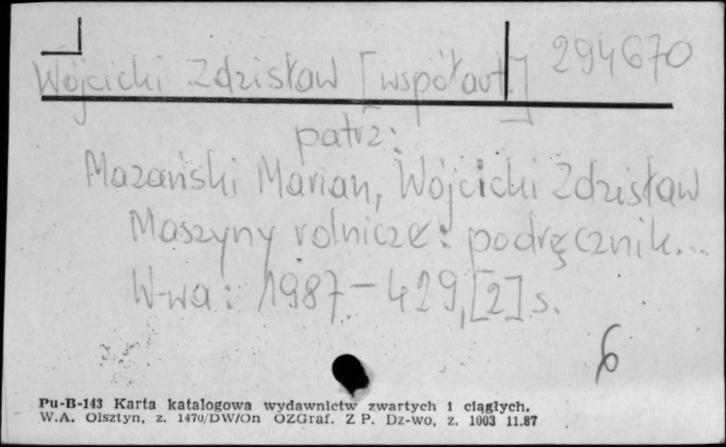 Wójcicki Zdzisław [współaut.] 294670
patrz:
Mazański Marian, Wójcicki Zdzisław
Maszyny rolnicze: podręcznik...
W-wa: 1987.- 429,[2] s.
6
Pu-B-143 Karta katalogowa wydawnictw zwartych i ciągłych.
W.A. Olsztyn, z. 1470/DW/On OZGraf. Z P. Dz-wo, z. 1003 11.87